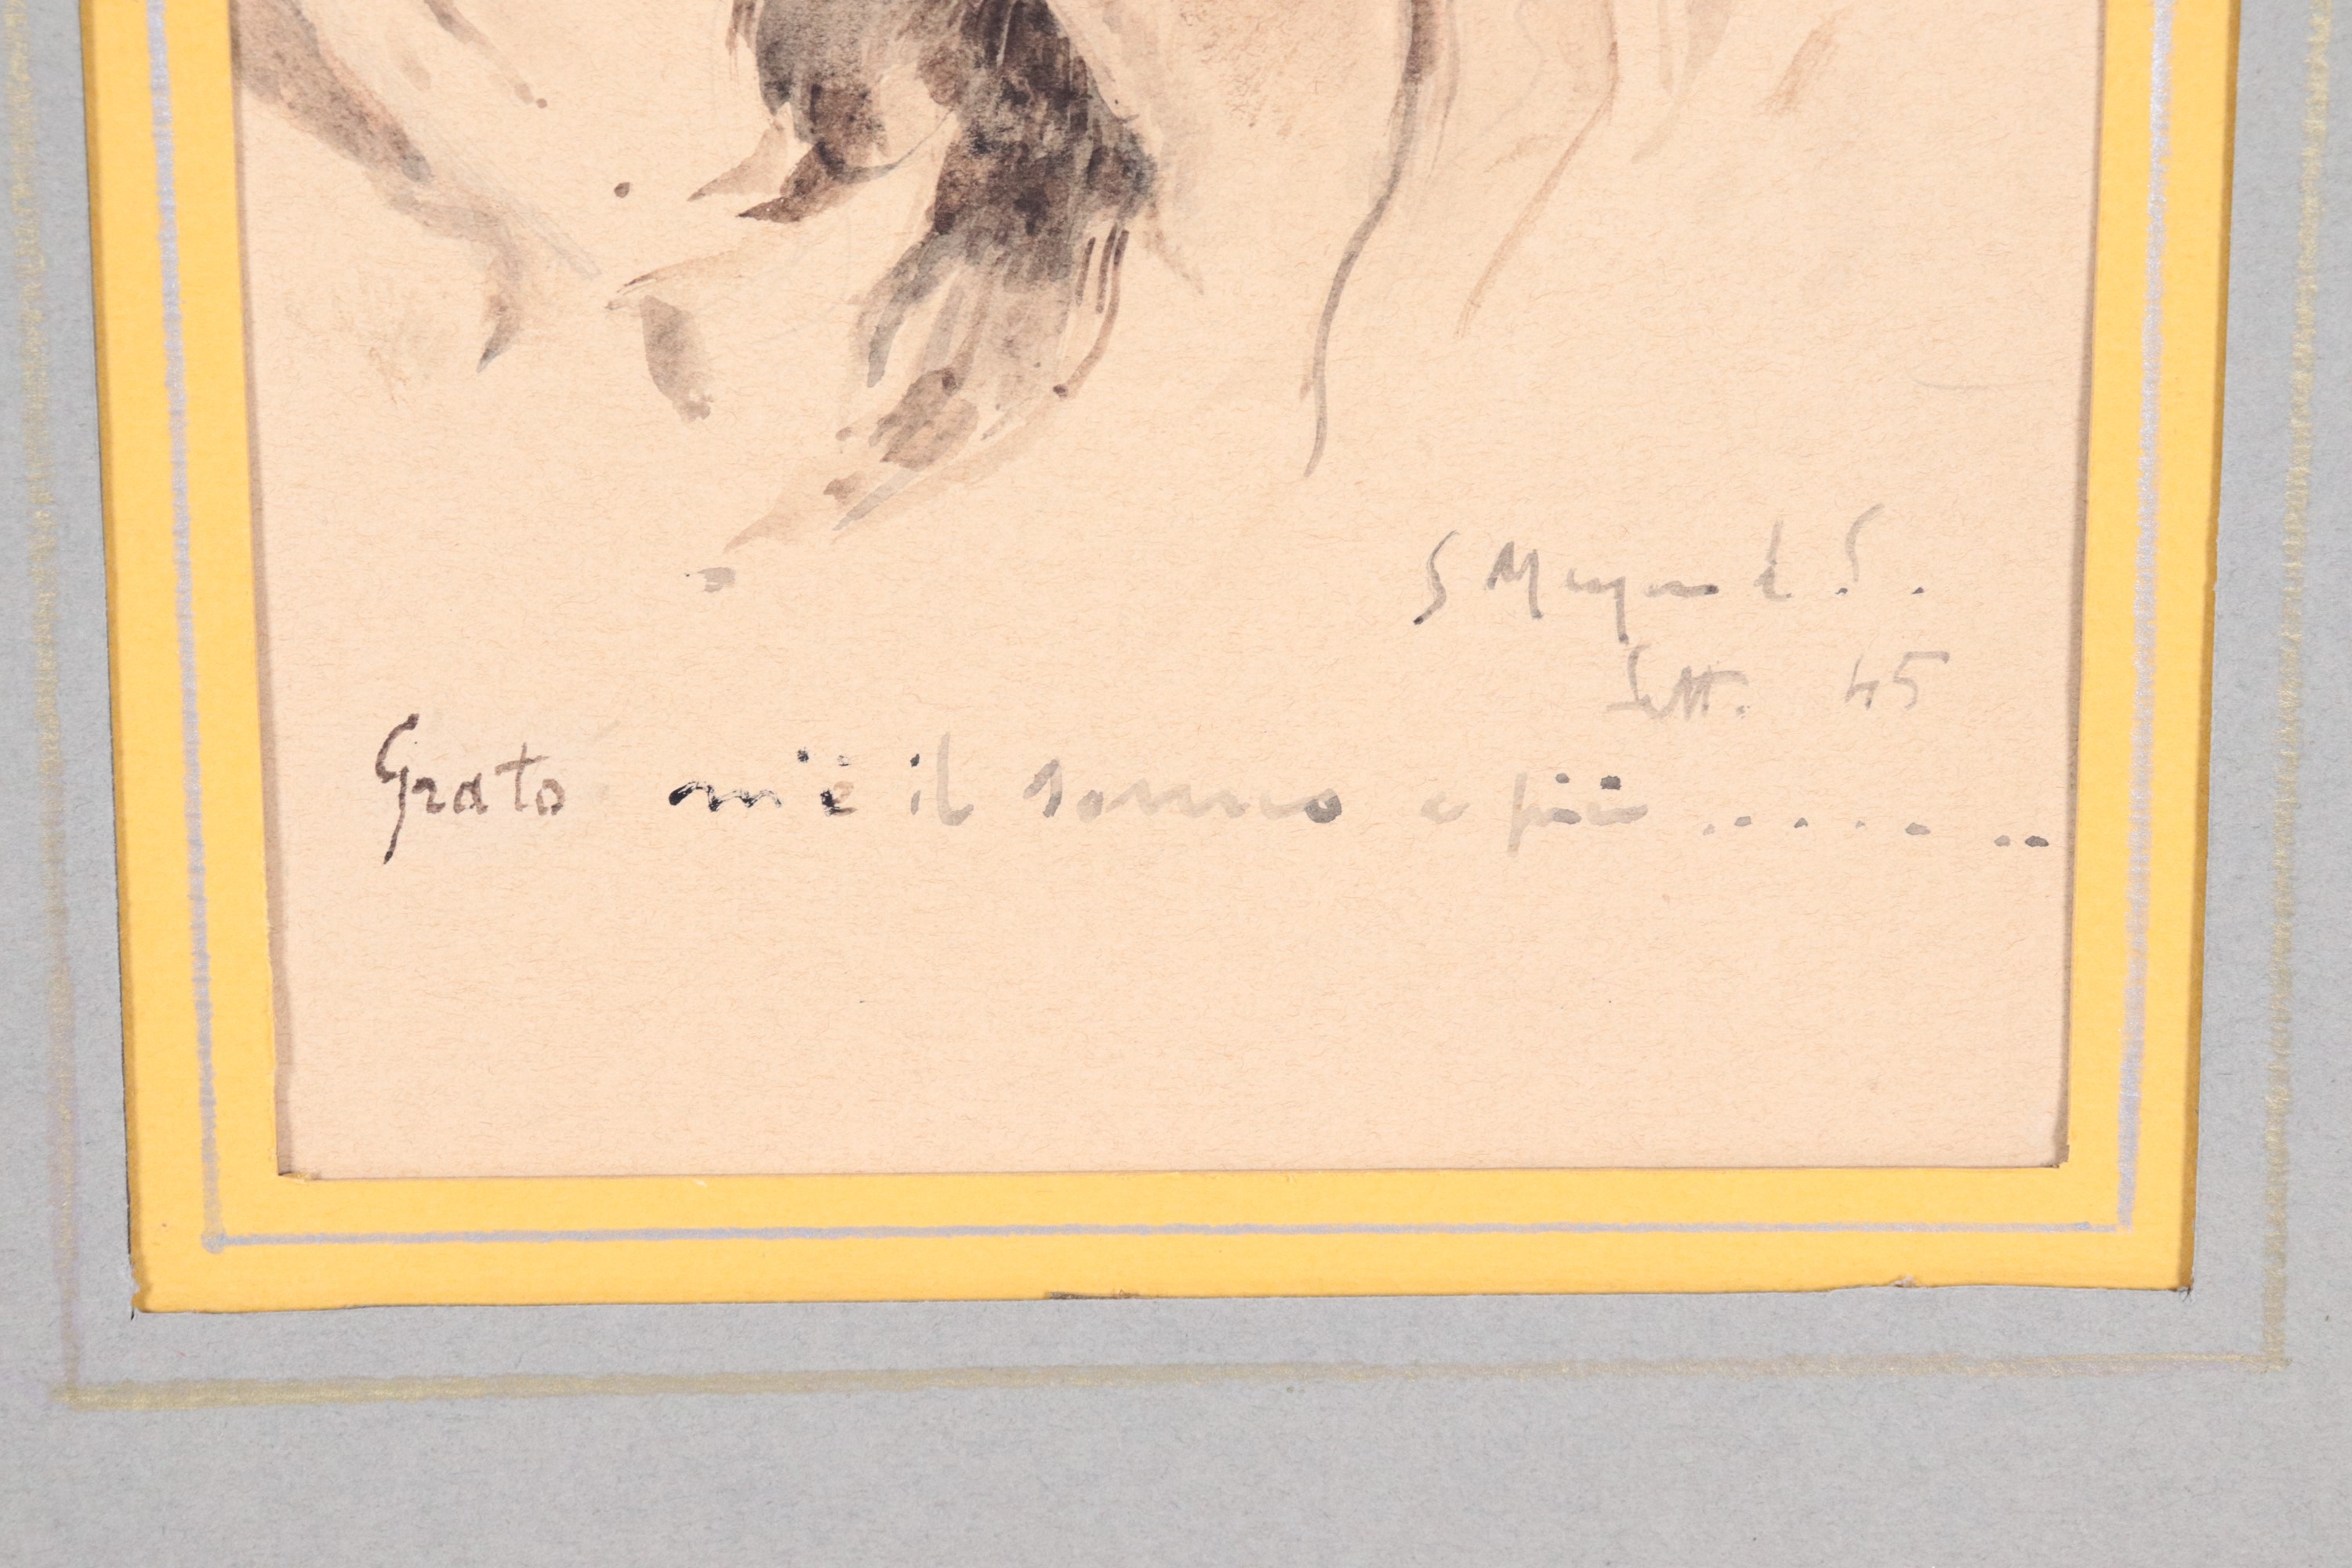 S
Sett. 45
Grato m'è il sonno e più . . . . . . .